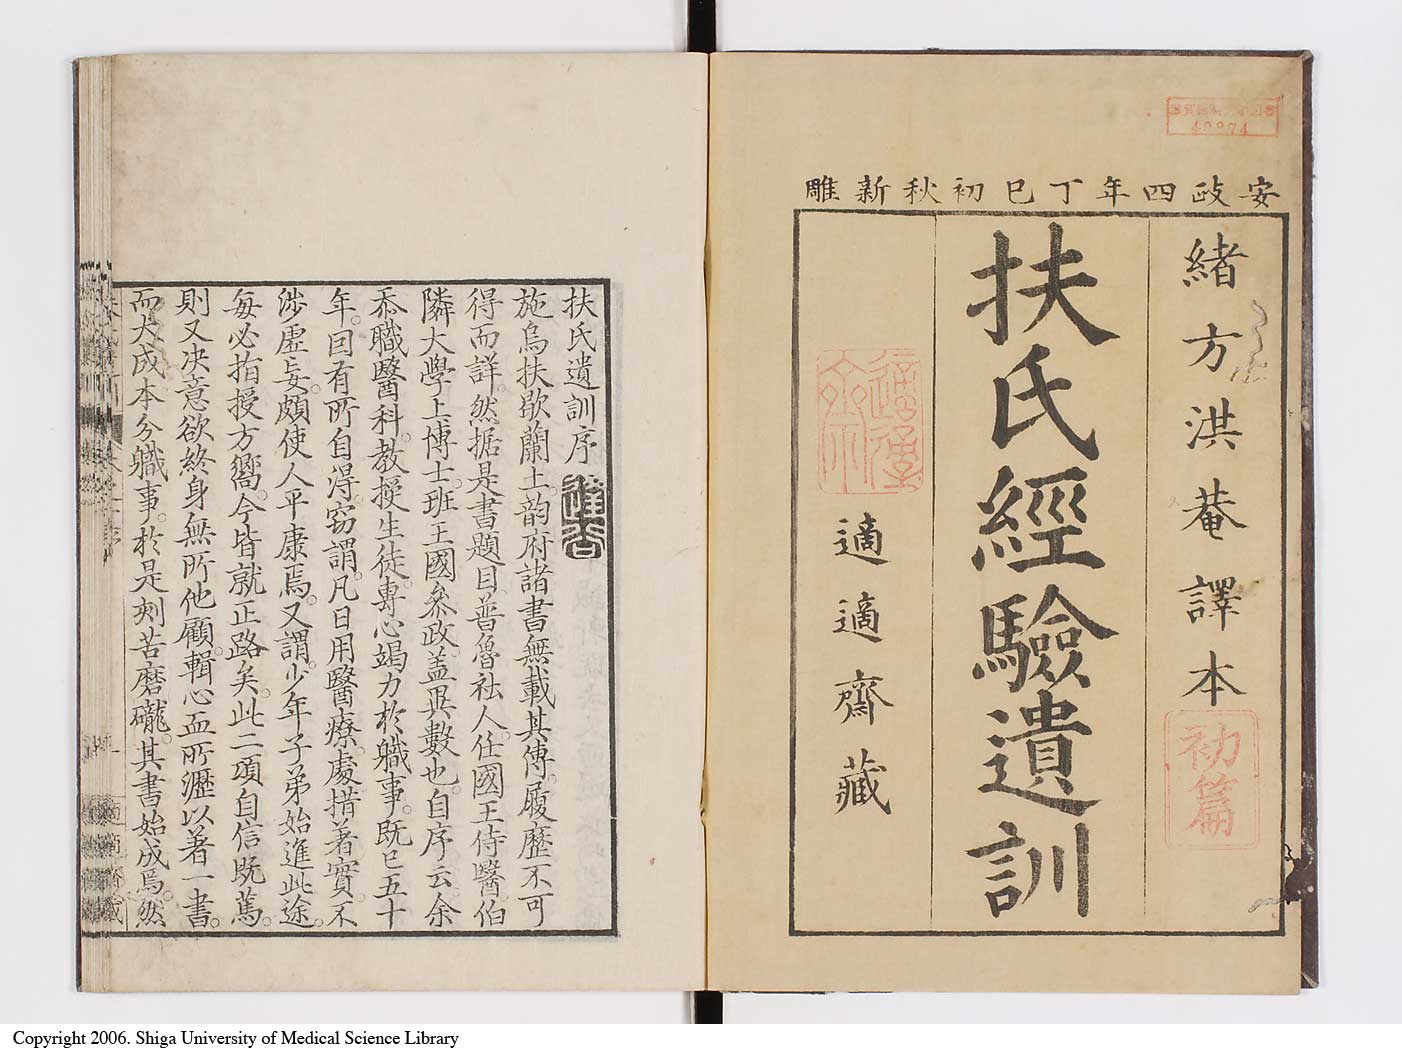 安政四年丁巳初秋新雕
緒方洪菴譯本
初篇
扶氏經驗遺訓
適適齋藏
48074
扶氏遺訓序
施烏扶歇蘭土韵府諸書無載其傳履歷不可
得而詳。然据是書題目普魯社人。任國王侍醫。伯
隣大學上博士。班王國叅政。盖異數也。自序云。余
忝職醫科。教授生徒。專心竭力於職事。既已五十
年。回有所自得。窃謂。凡日用醫療處措著實。不
涉虛妄。頗使人平康焉。又謂。少年子弟始進此途。
每必指授方嚮。今皆就正路矣。此二項自信既篤。
則又决意欲終身無所他顧。輯心血所瀝以著一書。
而大成本分職事。於是刻苦磨礲。其書始成焉。然
Copyright 2006. Shiga University of Medical Science Library